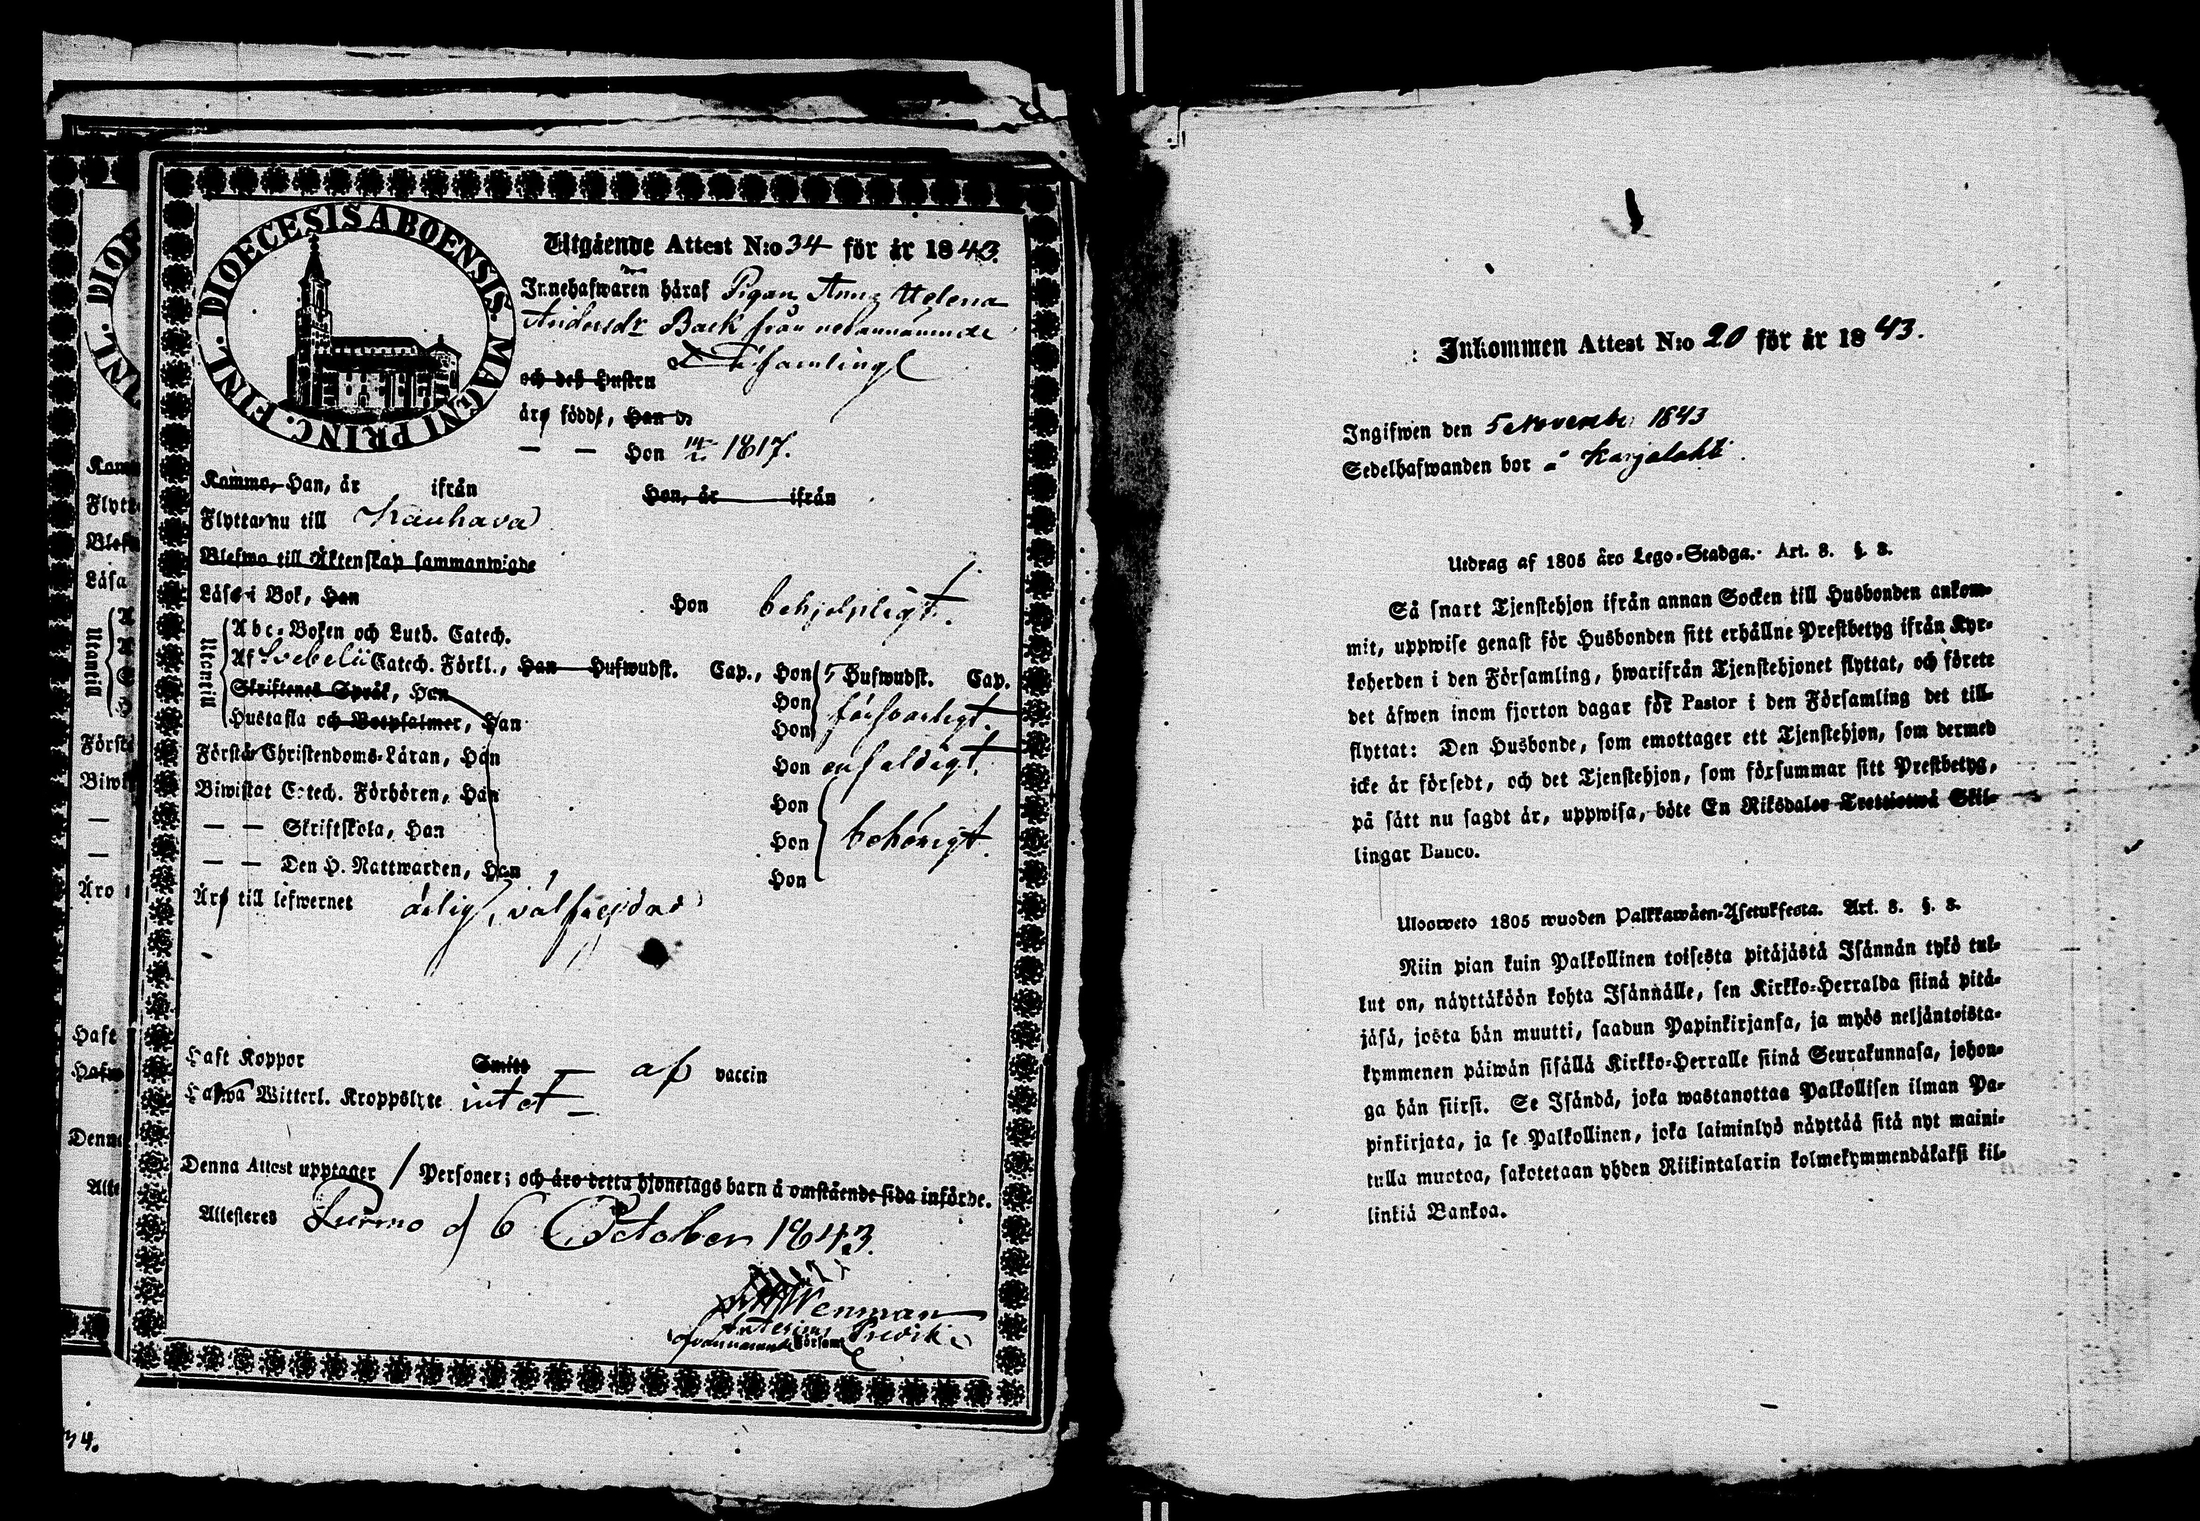 DIOECESIS ABOENSIS MAGNI PRINC. FINL.
Utgående Attest N:o 34 för år 1843.
Innehafwaren håraf Pigan Anna Helena
Andersdr Back från nedannämnde
och deß Hustru Församling
äro född, Han d.
— — Hon 1817.
Kommo, Han, år ifrån Hon, år ifrån
Flytta nu till Kauhava
Blefwo till Äktenskap sammanwigde
Läsa i Bok, Han Hon behjelpligt.
Utantill
Abc-Boken och Luth. Catech.
Af Svebelii Catech. Förkl., Han Hufwudst. Cap., Hon 5 Hufwudst. Cap.
Skriftenes Språk, Han Hon försvarligt.
Hustafla och Botpsalmer, Han Hon
Förstå Christendoms-Läran, Han Hon enfaldigt.
Biwistat Catech. Förhören, Han Hon
— — Skriftskola, Han Hon behörigt.
— — Den H. Nattwarden, Han Hon
Äro till lefwernet ärlig, välfrejdad
Haft Koppor Smitt af vaccin
Hafwa Witterl. Kroppslyte intet —
Denna Attest upptager 1 Personer; och äro detta hjonelags barn å omstående sida införde.
Attesteres Purmo d 6 October 1843.
Wenman
Församl
DIOE
INL.
Flytt
Blefw
Läsa
Utantill
Först
Biwis
—
—
Äro
Haft
Hafw
Denna
Atte
34.
Inkommen Attest N:o 20 för år 1843.
Ingifwen den 5 November 1843
Sedelhafwanden bor å Karjalahti
Utdrag af 1805 års Lego-Stadga. Art. 8. §. 8.
Så snart Tjenstehjon ifrån annan Socken till Husbonden ankom-
mit, uppwise genast för Husbonden sitt erhållne Prestbetyg ifrån Kyr-
koherden i den Församling, hwarifrån Tjenstehjonet flyttat, och förete
det äfwen inom fjorton dagar för Pastor i den Församling det till-
flyttat: Den Husbonde, som emottager ett Tjenstehjon, som dermed
icke är försedt, och det Tjenstehjon, som försummar sitt Prestbetyg,
på sätt nu sagdt är, uppwisa, böte En Riksdaler Trettiotwå Skil-
lingar Banco.
Ulosweto 1805 wuoden Palkkawäen-Asetuksesta. Art. 8. §. 8.
Niin pian kuin Palkollinen toisesta pitäjästä Isännän tykö tul-
lut on, näyttäköön kohta Isännälle, sen Kirkko-Herralda siinä pitä-
jäsä, josta hän muutti, saadun Papinkirjansa, ja myös neljäntoista-
kymmenen päiwän sisällä Kirkko-Herralle siinä Seurakunnasa, johon-
ga hän siirsi. Se Isändä, joka wastanottaa Palkollisen ilman Pa-
pinkirjata, ja se Palkollinen, joka laiminlyö näyttää sitä nyt maini-
tulla muotoa, sakotetaan yhden Riikintalarin kolmekymmendäkaksi kil-
linkiä Bankoa.